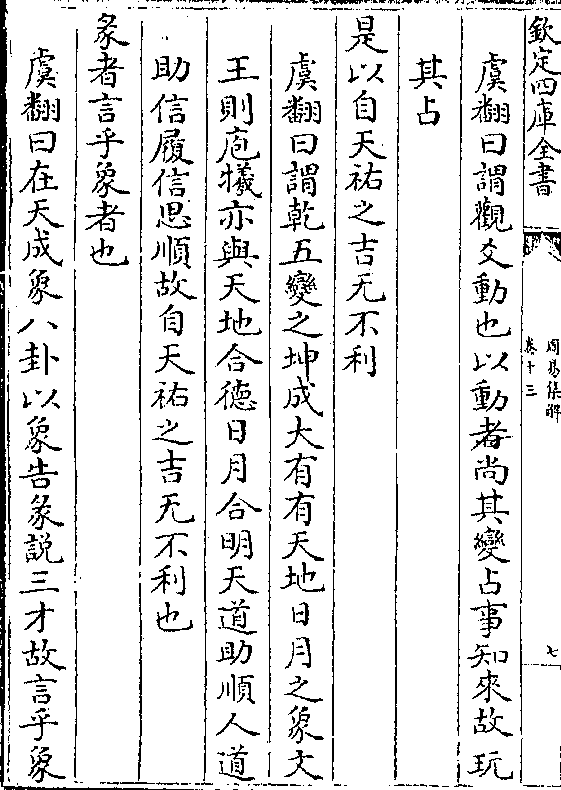 欽定四庫全書
周易集解
卷十三
七
虞翻曰謂觀爻動也以動者尚其變占事知來故玩
其占
是以自天祐之吉无不利
虞翻曰謂乾五變之坤成大有有天地日月之象文
王則庖犧亦與天地合德日月合明天道助順人道
助信履信思順故自天祐之吉无不利也
彖者言乎象者也
虞翻曰在天成象八卦以象告彖說三才故言乎象